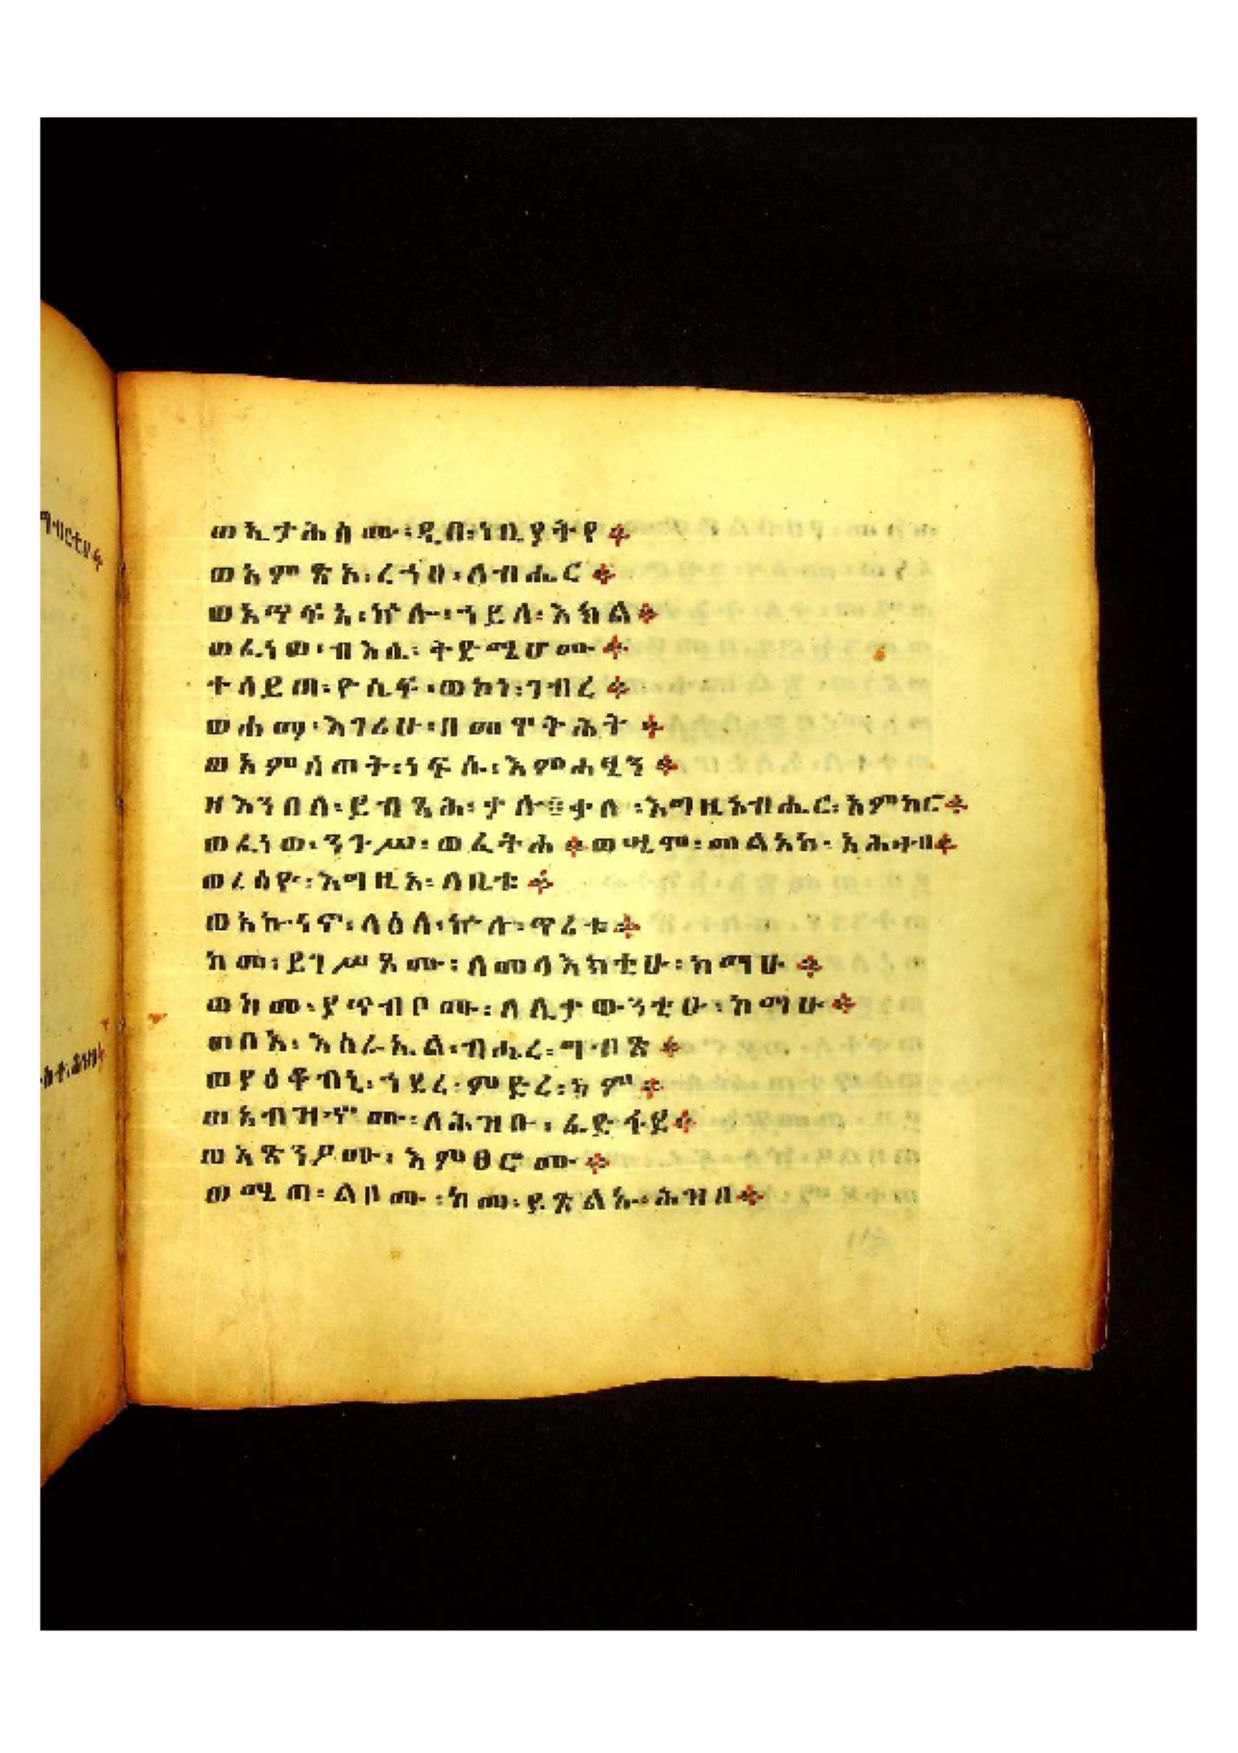 ማኅበርትየ።
ወኢታሕስሙ፡ዲበ፡ነቢያትየ።
ወአምጽአ፡ረኃበ፡ለብሔር።
ወአጥፍአ፡ኵሎ፡ኀይለ፡እክል።
ወፈነወ፡ብእሴ፡ቅድሜሆሙ።
ተሰይጠ፡ዮሴፍ፡ወኮነ፡ገብረ።
ወሐማ፡እገሪሁ፡በመዋቅሕት።
ወአምሰጠት፡ነፍሱ፡እምሐፂን።
ዘእንበለ፡ይብጻሕ፡ታሉ፡ቃለ፡እግዚአብሔር፡አምከሮ።
ወፈነወ፡ንጉሥ፡ወፈትሐ።ወሤሞ፡መልአከ፡አሕዛብ።
ወረሰዮ፡እግዚአ፡ለቤቱ።
ወአኰናኖ፡ላዕለ፡ኵሉ፡ጥሪቱ።
ከመ፡ይገሥጾሙ፡ለመላእክቲሁ፡ከማሁ።
ወከመ፡ያጥብቦሙ፡ለሊቃውንቲሁ፡ከማሁ።
ወቦአ፡እስራኤል፡ብሔረ፡ግብጽ።
ወያዕቆብኒ፡ኀደረ፡ምድረ፡ካም።
ወአብዝኆሙ፡ለሕዝቡ፡ፈድፋደ።
ወአጽንዖሙ፡እምፀሮሙ።
ወሜጠ፡ልቦሙ፡ከመ፡ይጽልኡ፡ሕዝቦ።